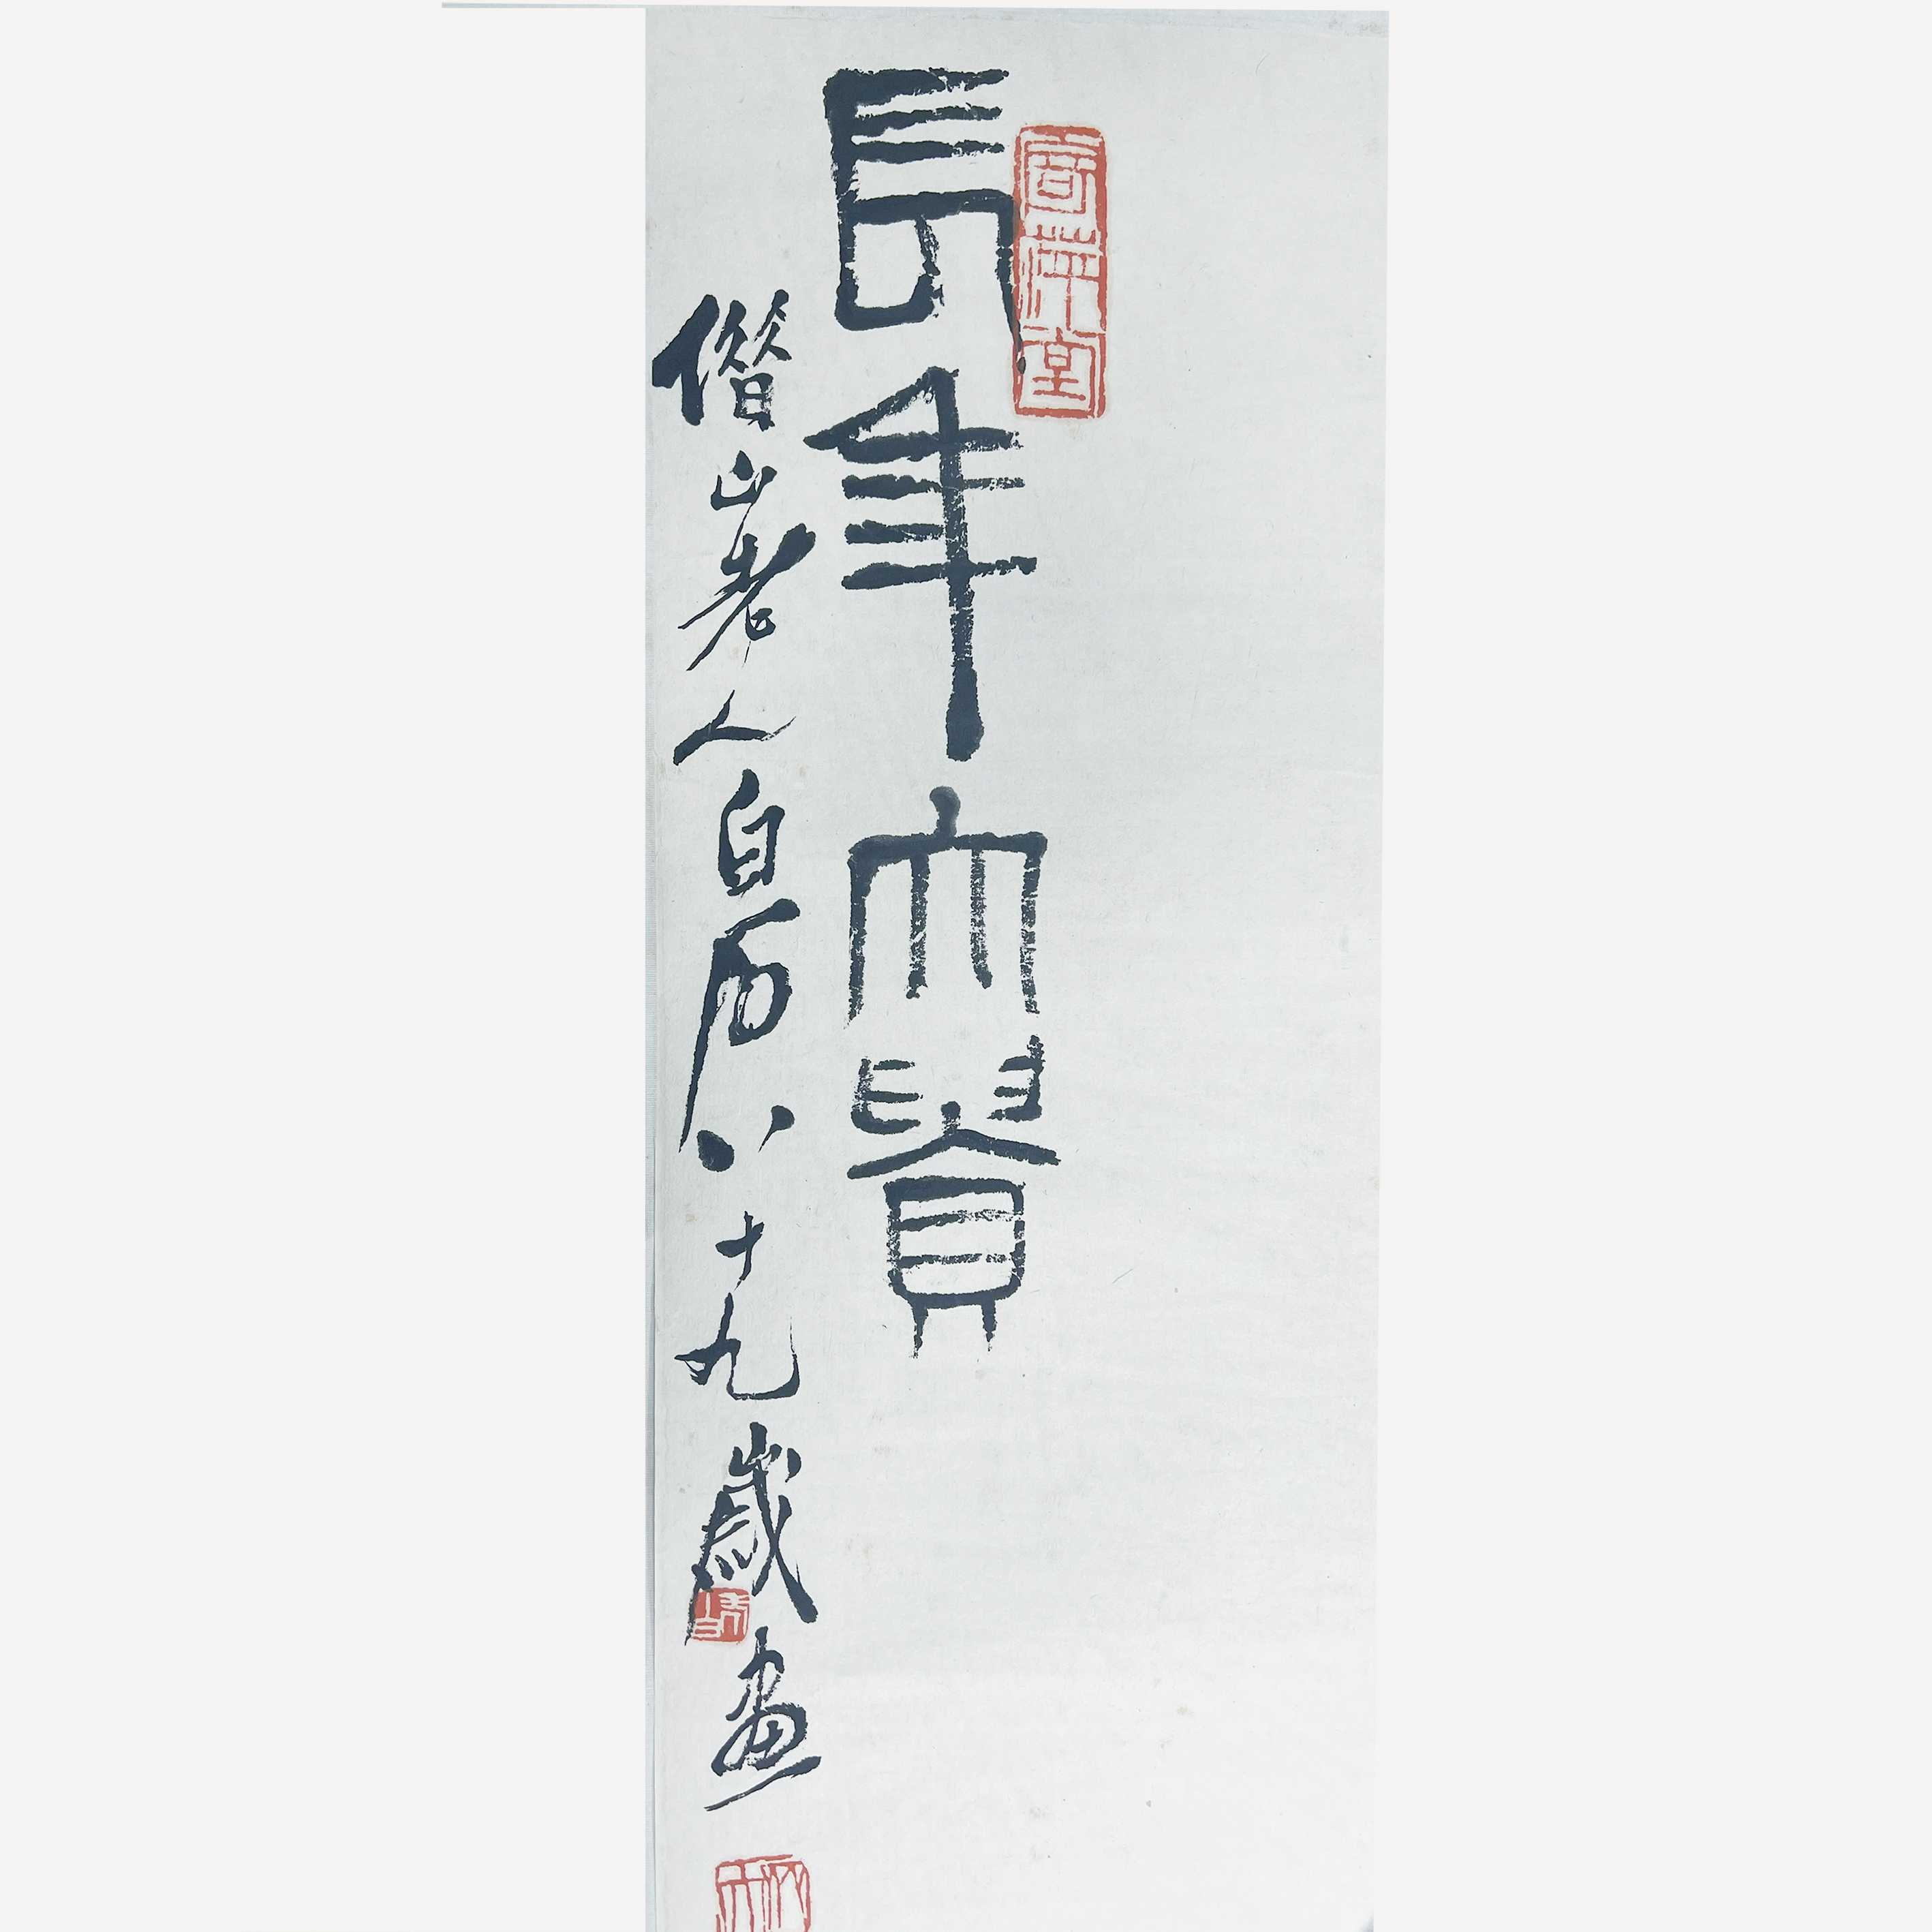 長年大貴
借山老人白石八十九歲畫